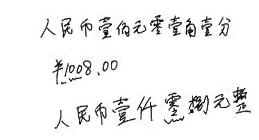 人民币壹佰元零壹角壹分
¥1008.00
人民币壹仟零捌元整